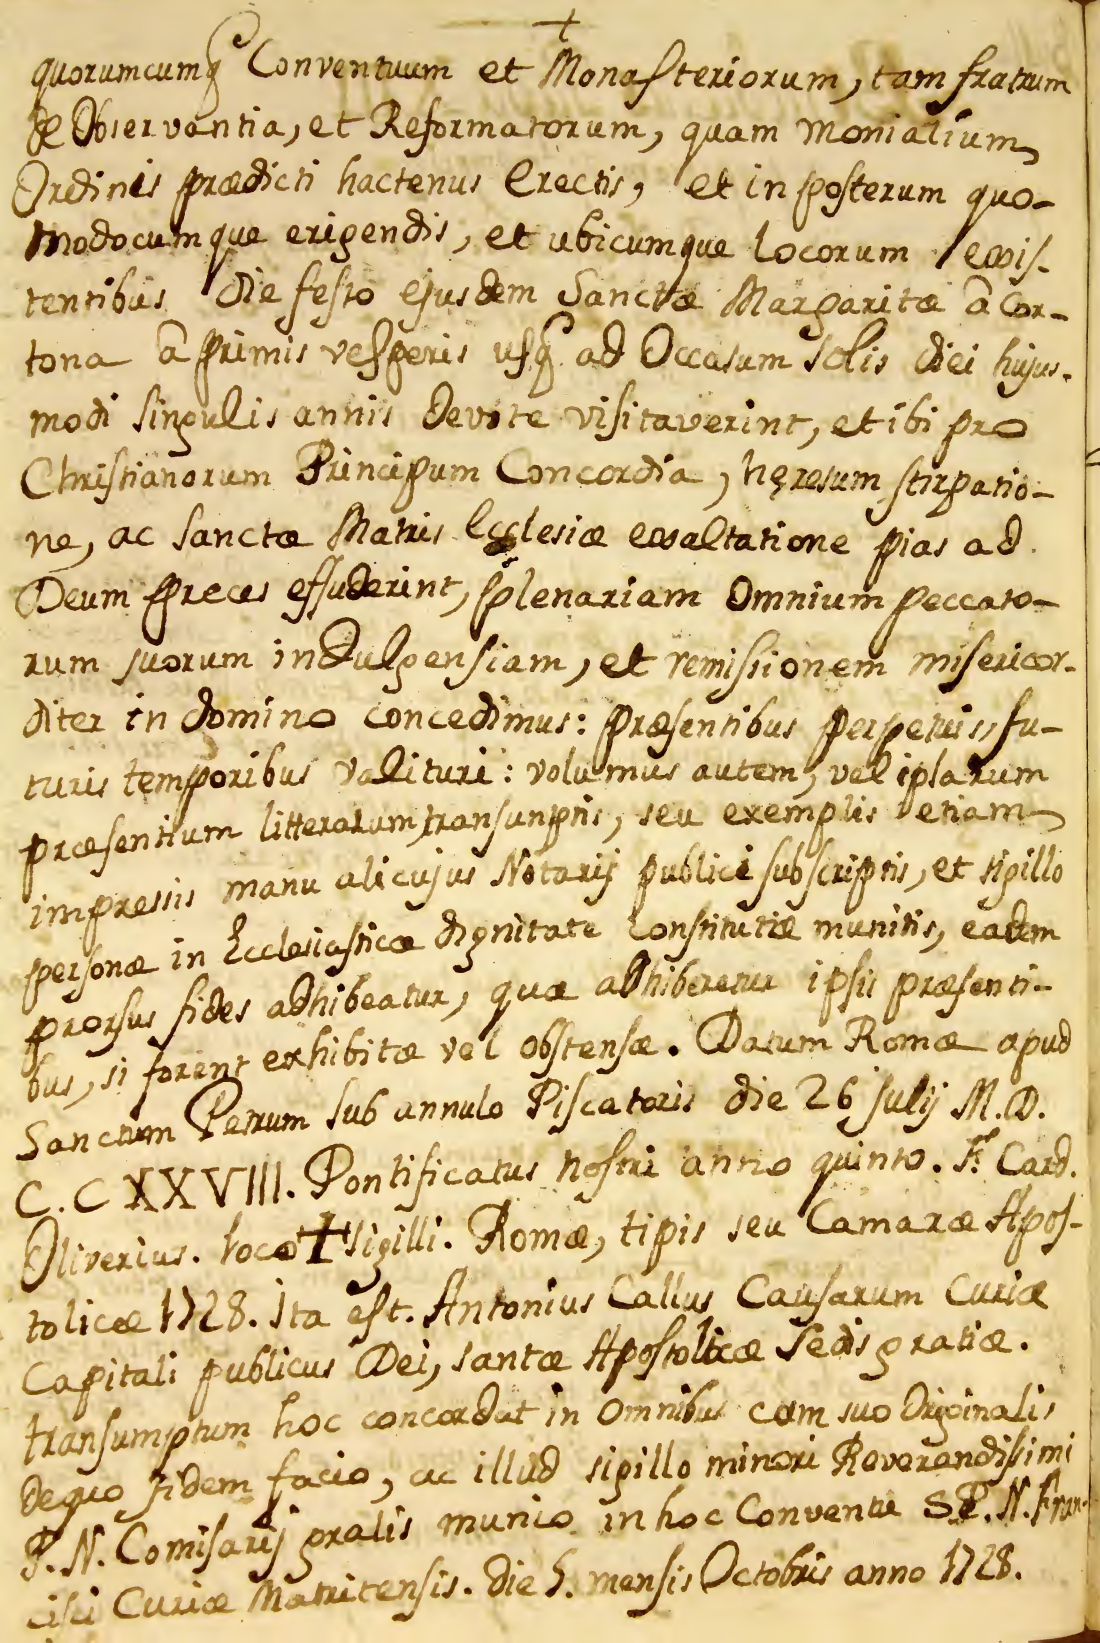 +
quorumcumq Conventuum et Monasteriorum, tam fratrum
de Observantia, et Reformatorum, quam Monialium,
Ordinis prædicti hactenus Erectis, et in posterum quo-
modocumque erigendis, et ubicumque Locorum exis-
tentibus die festo ejusdem Sanctæ Margaritæ à Cor-
tona à primis vesperis usq ad Occasum solis diei hujus-
modi singulis annis devote visitaverint, et ibi pro
Christianorum Principum Concordia, hęresum stirpatio-
ne, ac sanctæ Matris Ecclesiæ exaltatione pias ad
Deum preces effuderint, plenariam Omnium peccato-
rum suorum indulgensiam, et remissionem misericor-
diter in domino concedimus: præsentibus perpetuis, fu-
turis temporibus valituri: volumus autem, vel ipsarum
præsentium litterarum transumptis, seu exemplis etiam
impressis manu alicujus Notarij publici subscriptis, et sigillo
personæ in Ecclesiasticæ dignitate constitutiæ munitis, eadem
prorsus fides adhibeatur, quæ adhiberetur ipsis præsenti-
bus, si forent exhibitæ vel obstensæ. Datum Romæ apud
Sanctum Petrum sub annulo Piscatoris die 26 julij M.D.
C.C XXVIII. Pontificatus nostri anno quinto. F. Card.
Oliverius. Loco + sigilli. Romæ, tipis seu Camaræ Apos-
tolicæ 1728. Ita est. Antonius Callus Causarum Curiæ
Capitali publicus Dei, santæ Apostolicæ Sedis gratiæ.
transumptum hoc concordat in Omnibus cum suo Originalis
dequo fidem facio, ac illud sigillo minori Reverendissimi
P. N. Comisarij gralis munio in hoc Conventu S.P.N. Fran-
cisci Curiæ Matritensis. die 5. mensis Octobris anno 1728.